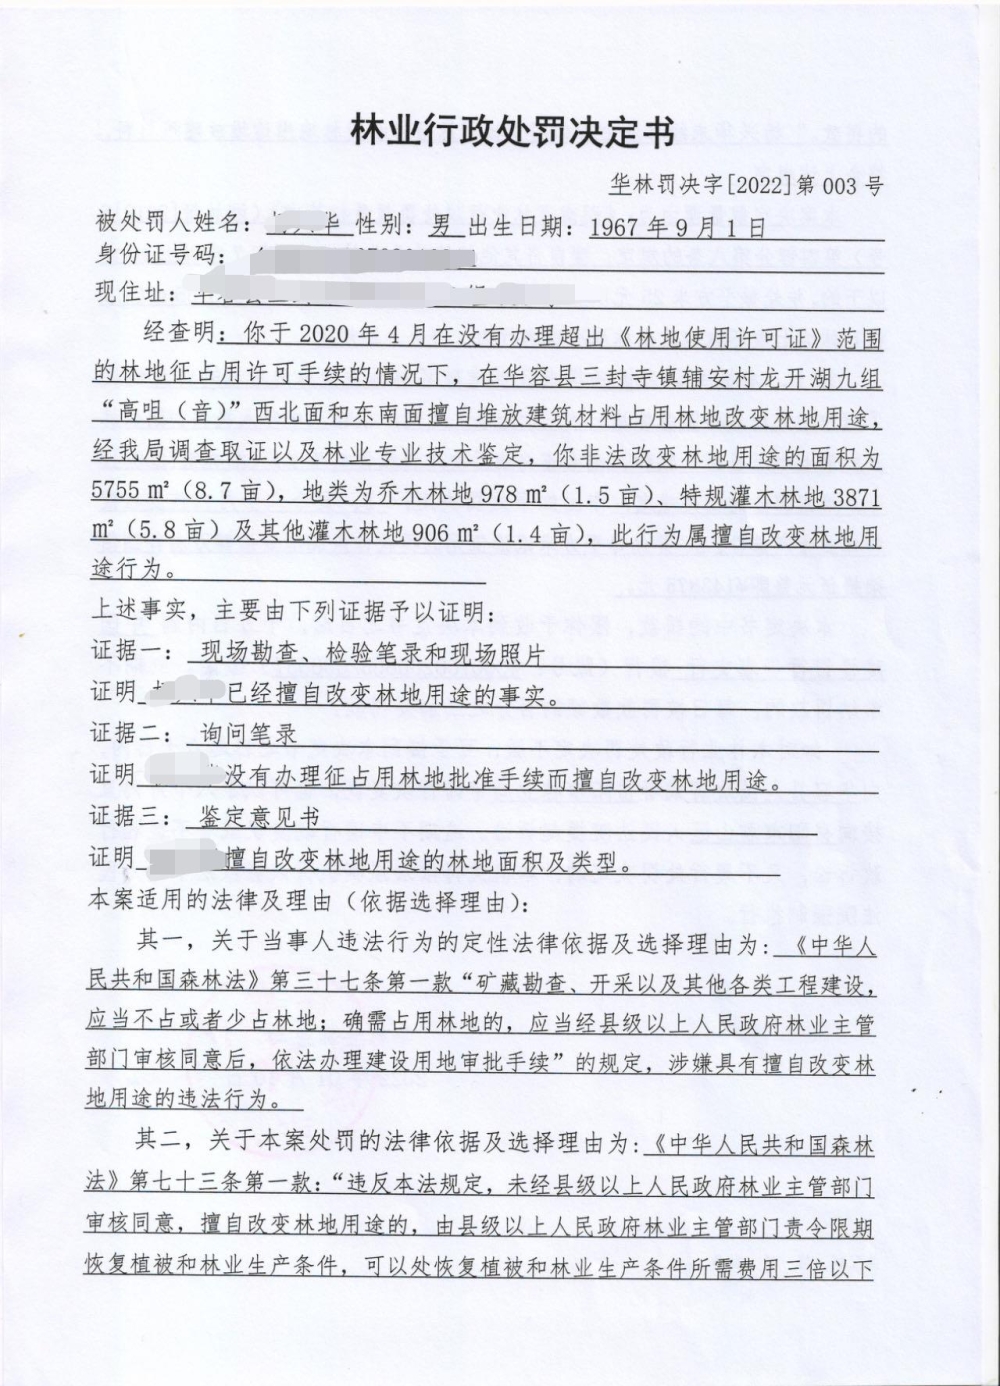 林业行政处罚决定书
华林罚决字[2022]第 003 号
被处罚人姓名：华 性别：男 出生日期：1967 年 9 月 1 日
身份证号码：
现住址：
经查明：你于 2020 年 4 月在没有办理超出《林地使用许可证》范围
的林地征占用许可手续的情况下，在华容县三封寺镇辅安村龙开湖九组
“高咀（音）”西北面和东南面擅自堆放建筑材料占用林地改变林地用途，
经我局调查取证以及林业专业技术鉴定，你非法改变林地用途的面积为
5755 ㎡（8.7 亩），地类为乔木林地 978 ㎡（1.5 亩）、特规灌木林地 3871
㎡（5.8 亩）及其他灌木林地 906 ㎡（1.4 亩），此行为属擅自改变林地用
途行为。
上述事实，主要由下列证据予以证明：
证据一： 现场勘查、检验笔录和现场照片
证明 已经擅自改变林地用途的事实。
证据二： 询问笔录
证明 没有办理征占用林地批准手续而擅自改变林地用途。
证据三： 鉴定意见书
证明 擅自改变林地用途的林地面积及类型。
本案适用的法律及理由（依据选择理由）：
其一，关于当事人违法行为的定性法律依据及选择理由为：《中华人
民共和国森林法》第三十七条第一款“矿藏勘查、开采以及其他各类工程建设，
应当不占或者少占林地；确需占用林地的，应当经县级以上人民政府林业主管
部门审核同意后，依法办理建设用地审批手续”的规定，涉嫌具有擅自改变林
地用途的违法行为。
其二，关于本案处罚的法律依据及选择理由为：《中华人民共和国森林
法》第七十三条第一款：“违反本法规定，未经县级以上人民政府林业主管部门
审核同意，擅自改变林地用途的，由县级以上人民政府林业主管部门责令限期
恢复植被和林业生产条件，可以处恢复植被和林业生产条件所需费用三倍以下